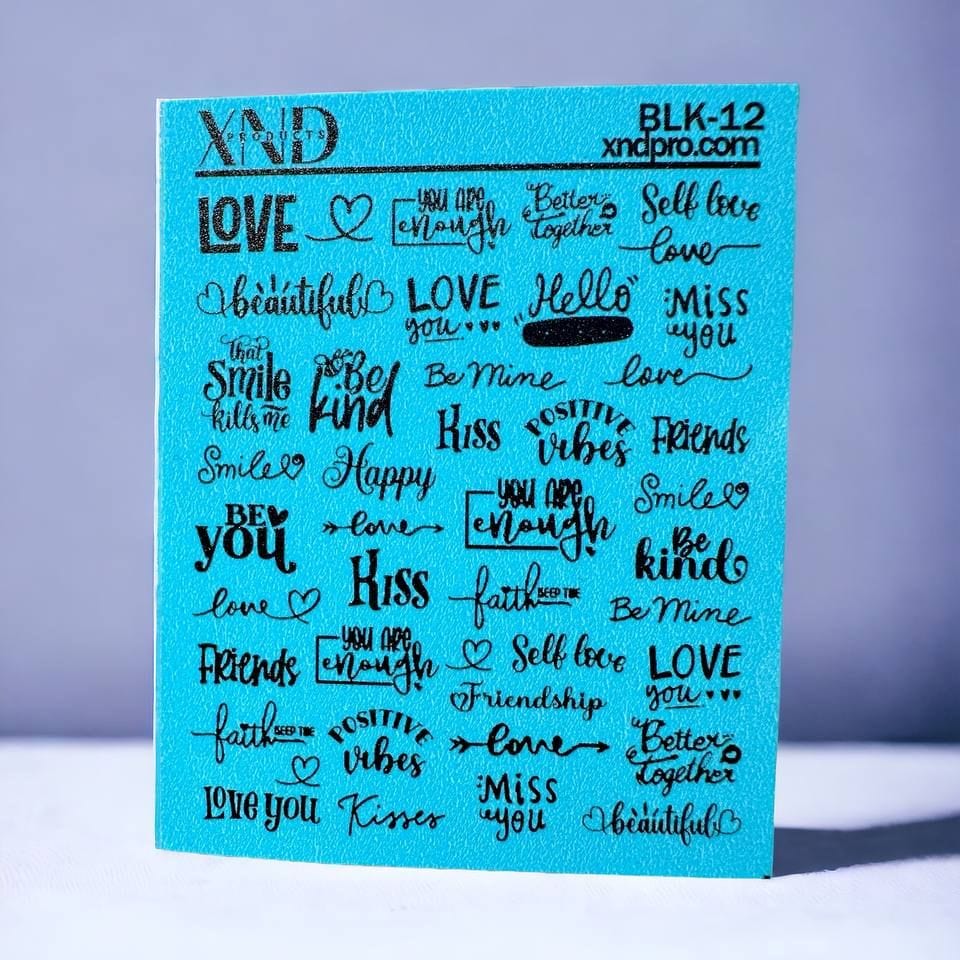 XND
PRODUCTS
BLK-12
xndpro.com
LOVE
you are
enough
Better
together
Self love
love
beautiful
LOVE
you
"Hello"
Miss
you
That
Smile
kills me
Be
kind
Be Mine
love
Kiss
POSITIVE
vibes
Friends
Smile
Happy
you are
enough
Smile
BE
you
love
Kiss
faith
Be
kind
love
Be Mine
Friends
you are
enough
Self love
LOVE
you
Friendship
faith
POSITIVE
vibes
love
Better
together
Love you
Kisses
Miss
you
beautiful